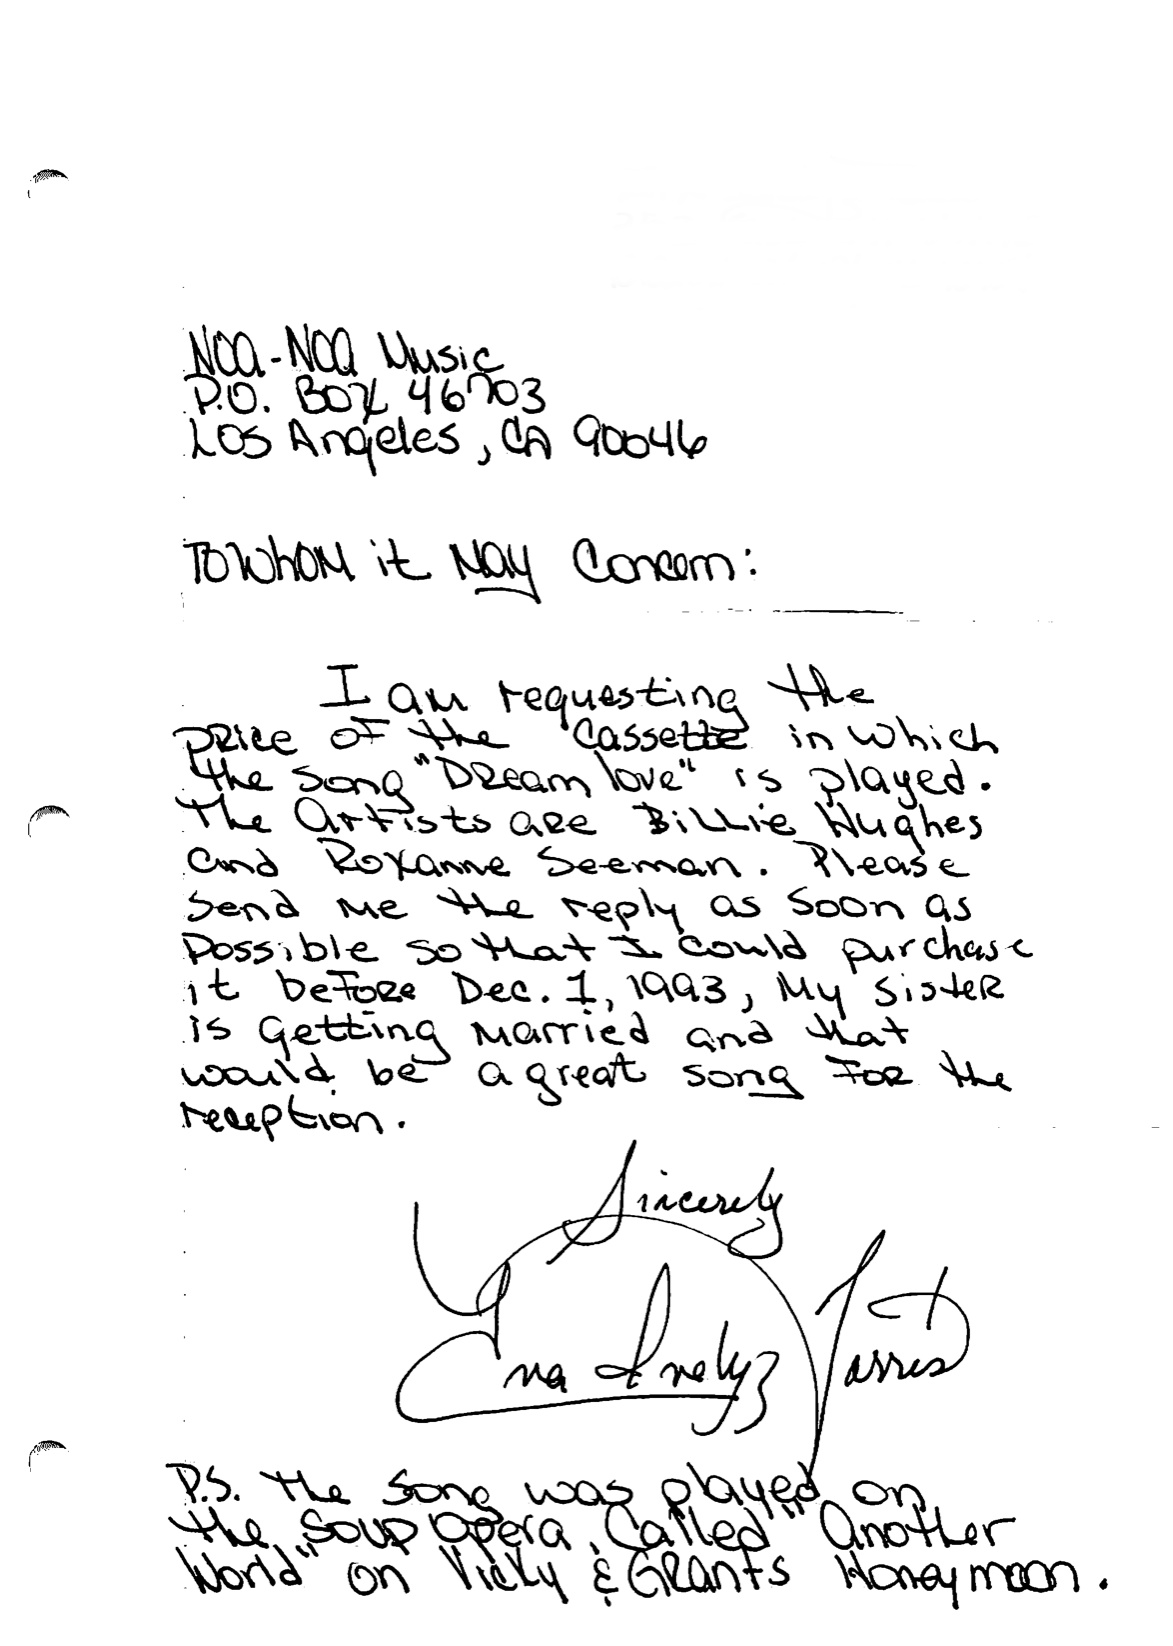 Noa-Noa Music
P.O. Box 46703
Los Angeles, CA 90046
To Whom it May Concern:
I am requesting the
price of the Cassette in which
the song "Dream love" is played.
The Artists are Billie Hughes
and Roxanne Seeman. Please
send me the reply as soon as
possible so that I could purchase
it before Dec. 1, 1993, My sister
is getting married and that
would be a great song for the
reception.
Sincerely
Ana Torres
P.S. the song was played on
the Soup Opera, Called "Another
World" on Vicky & Grants Honeymoon.